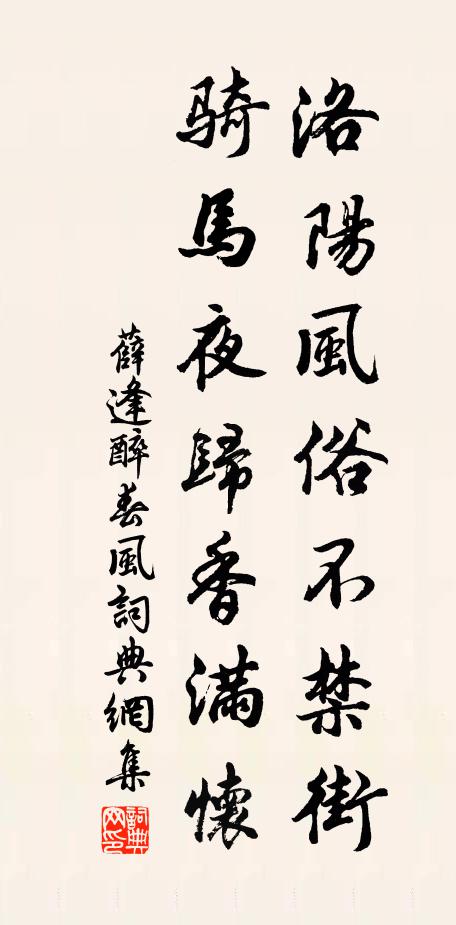 洛陽風俗不禁街
騎馬夜歸香滿懷
薛逢醉春風詞典網集
詞典網印